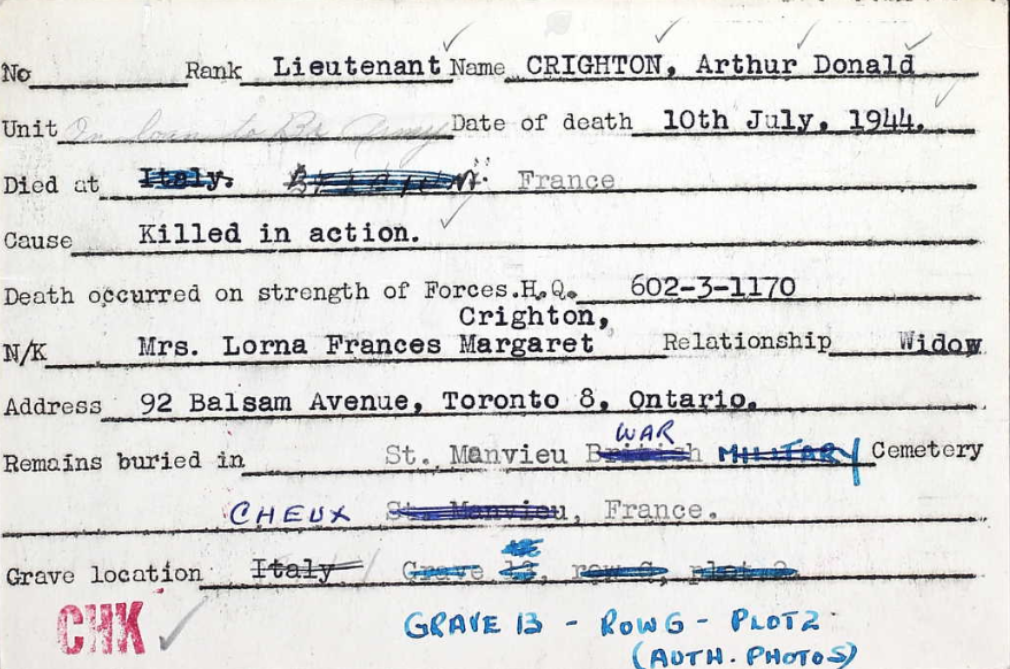 No Rank Lieutenant Name CRIGHTON, Arthur Donald
Unit On loan to Br Army Date of death 10th July, 1944.
Died at Italy. France
Cause Killed in action.
Death occurred on strength of Forces.H.Q. 602-3-1170
Crighton,
N/K Mrs. Lorna Frances Margaret Relationship Widow
Address 92 Balsam Avenue, Toronto 8, Ontario.
WAR
Remains buried in St. Manvieu British MILITARY Cemetery
CHEUX St. Manvieu, France.
Grave location Italy Grave 13, row G, plot 2.
CHK GRAVE 13 - ROW G - PLOT 2
(AUTH. PHOTOS)